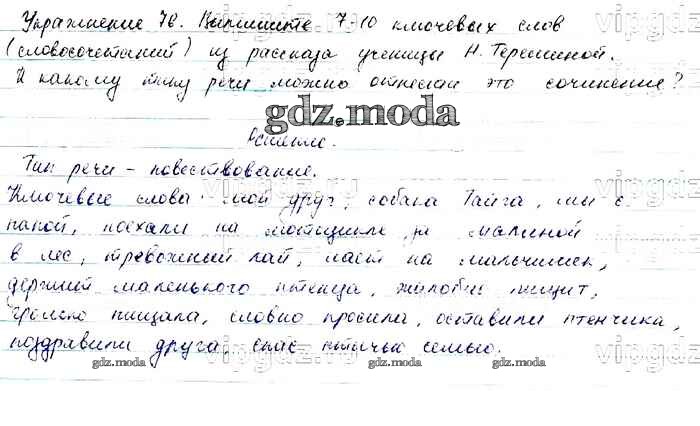 Упражнение 78. Выпишите 7-10 ключевых слов
(словосочетаний) из рассказа ученицы Н. Терешиной.
К какому типу речи можно отнести это сочинение?
gdz.moda
Решение.
Тип речи - повествование.
vipgdz.ru
Ключевые слова: мой друг, собака Тайга, мы с
папой, поехали на мотоцикле за малиной
в лес, тревожный лай, лает на мальчишек,
держит маленького птенца, жалобно пищит,
громко пищала, словно просила, оставили птенчика,
vipgdz.ru
поздравили друга, спас птичью семью.
gdz.moda
gdz.moda
gdz.moda